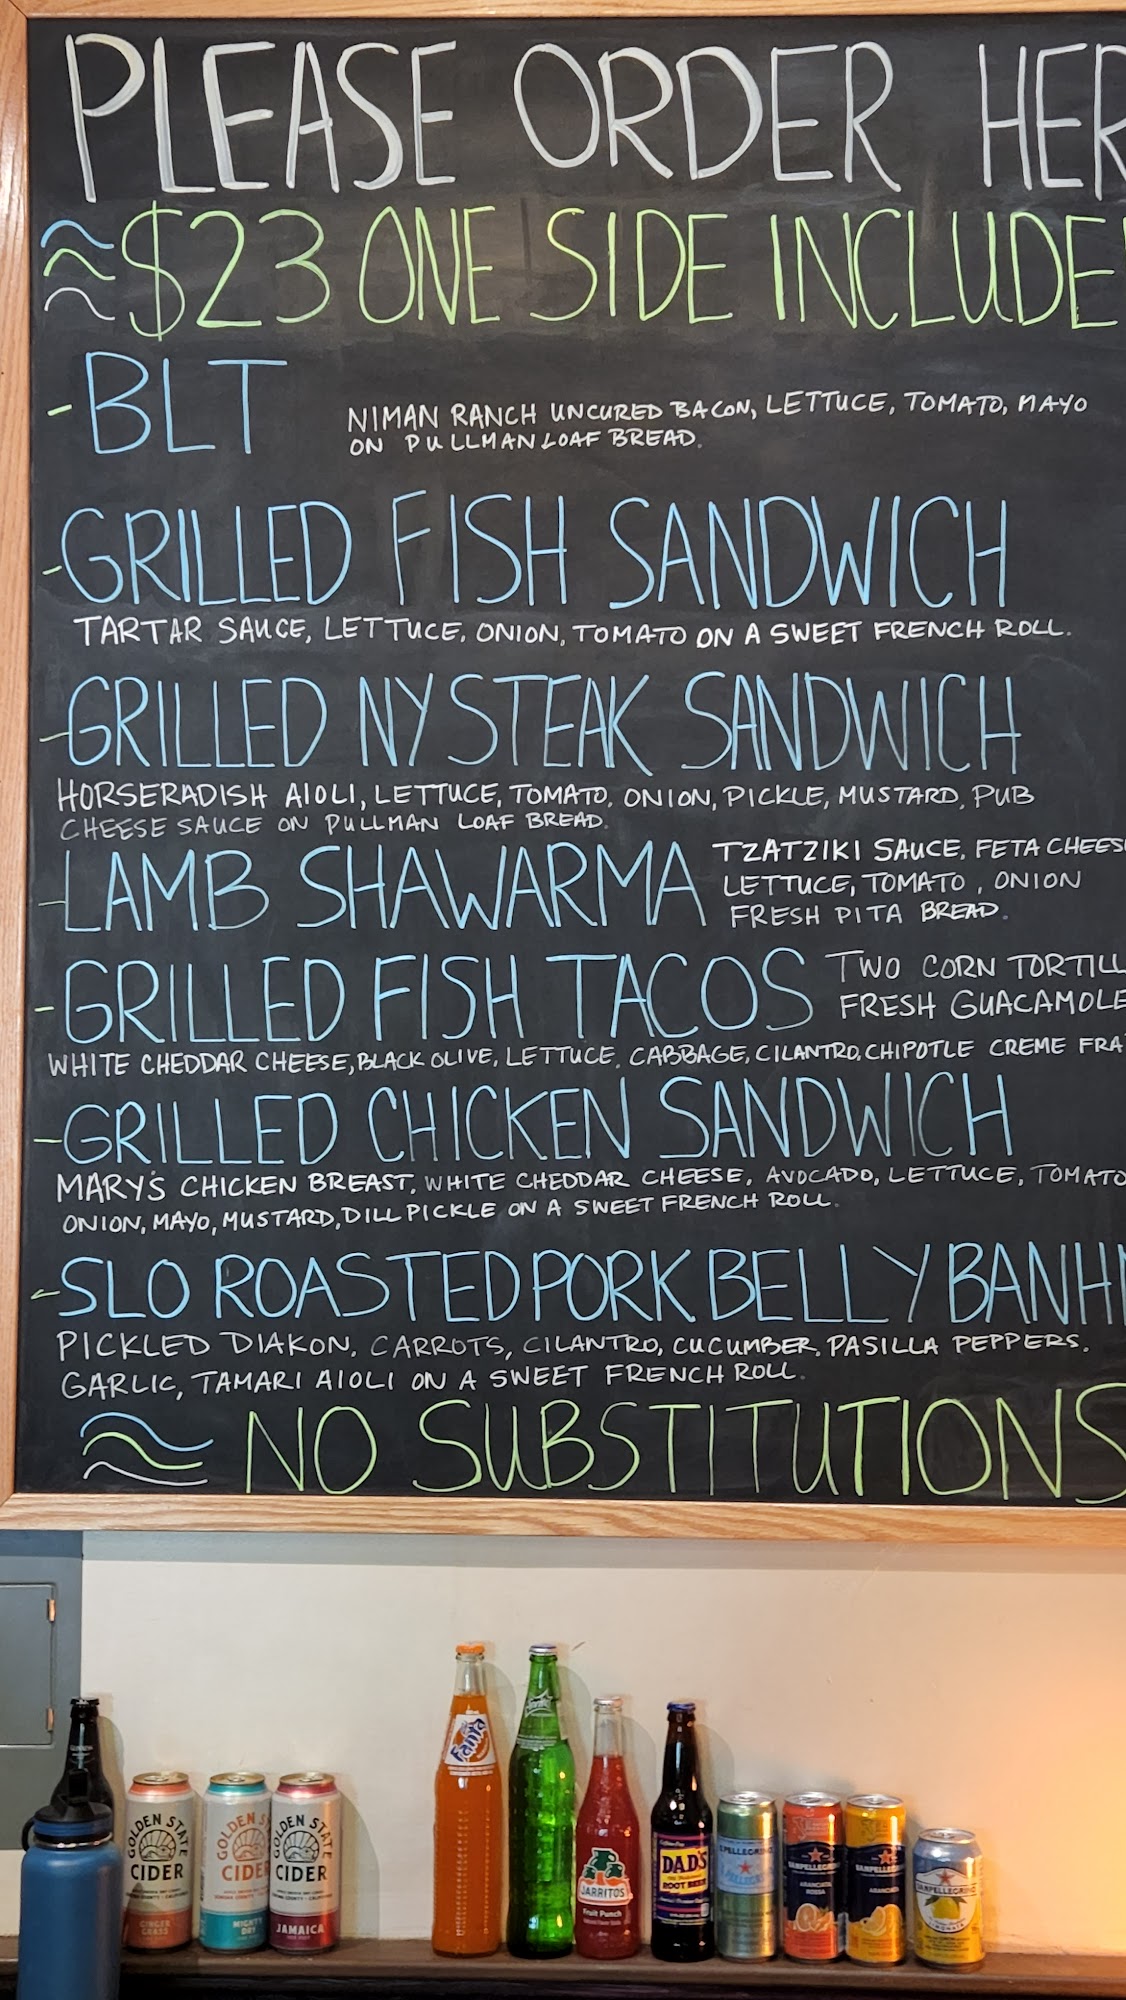 PLEASE ORDER HER
≈$23 ONE SIDE INCLUDE
-BLT
NIMAN RANCH UNCURED BACON, LETTUCE, TOMATO, MAYO
ON PULLMAN LOAF BREAD.
-GRILLED FISH SANDWICH
TARTAR SAUCE, LETTUCE, ONION, TOMATO ON A SWEET FRENCH ROLL.
-GRILLED NY STEAK SANDWICH
HORSERADISH AIOLI, LETTUCE, TOMATO, ONION, PICKLE, MUSTARD, PUB
CHEESE SAUCE ON PULLMAN LOAF BREAD.
-LAMB SHAWARMA
TZATZIKI SAUCE, FETA CHEES
LETTUCE, TOMATO, ONION
FRESH PITA BREAD.
-GRILLED FISH TACOS
TWO CORN TORTILL
FRESH GUACAMOLE
WHITE CHEDDAR CHEESE, BLACK OLIVE, LETTUCE, CABBAGE, CILANTRO, CHIPOTLE CREME FRA
-GRILLED CHICKEN SANDWICH
MARY'S CHICKEN BREAST, WHITE CHEDDAR CHEESE, AVOCADO, LETTUCE, TOMATO
ONION, MAYO, MUSTARD, DILL PICKLE ON A SWEET FRENCH ROLL.
-SLO ROASTED PORK BELLY BANH
PICKLED DIAKON, CARROTS, CILANTRO, CUCUMBER, PASILLA PEPPERS,
GARLIC, TAMARI AIOLI ON A SWEET FRENCH ROLL.
≈ NO SUBSTITUTIONS
GOLDEN STATE
CIDER
GINGER
GRASS
GOLDEN S
CIDE
MIGHTY
DRY
GOLDEN STATE
CIDER
JAMAICA
Fanta
Sprite
JARRITOS
Fruit Punch
DAD'S
ROOT BEER
S.PELLEGRINO
SANPELLEGRINO
ARANCIATA
ROSSA
SANPELLEGRINO
ARANCIATA
SANPELLEGRINO
LIMONATA